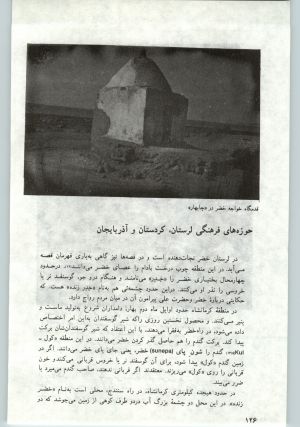 قدمگاه خواجه خضر در چابهار
حوزه‌های فرهنگی لرستان، کردستان و آذربایجان
در لرستان خضر نجات‌دهنده است و در قصه‌ها نیز گاهی به‌یاری قهرمان قصه
می‌آید. در این منطقه چوب درخت بادام را عصای خضر می‌دانند. در حدود
چهارمحال بختیاری خضر را می‌نامند و هنگام درو جو، گوسفند نر یا
خروسی را نذر او می‌کنند. در این حدود چشمه‌ای هم به‌نام خضر زنده هست. که
حکایتی دربارهٔ خضر و حضرت علی پیرامون آن در میان مردم رواج دارد.
در منطقه کرمانشاه حدود اوایل ماه دوم بهار، دامداران شروع به‌تولید ماست و
پنیر می‌کنند. و محصول نخستین روزی را که شیر گوسفندان به‌این امر اختصاص
داده می‌شود، در راه خضر به‌فقرا می‌دهند، با این اعتقاد که شیر گوسفندان‌شان برکت
پیدا کند. برکت گندم را هم حاصل گذر کردن خضر می‌دانند. در این منطقه «کول ـ
Kul»، گندم را شون پای (sunepa) خضر، یعنی جای پای خضر می‌دانند. اگر در
زمین گندم «کول» پیدا شود، برای آن گوسفند نر یا خروس قربانی می‌کنند و خون
قربانی را روی «کول» می‌ریزند. معتقدند اگر قربانی ندهند، صاحب گندم می‌میرد یا
ضرر می‌بیند.
در حدود هیجده کیلومتری کرمانشاه، در راه سنندج، محلی است به‌نام «خضر
زنده». در این محل دو چشمهٔ بزرگ آب در دو طرف کوهی از زمین می‌جوشد که دو
۱۲۶